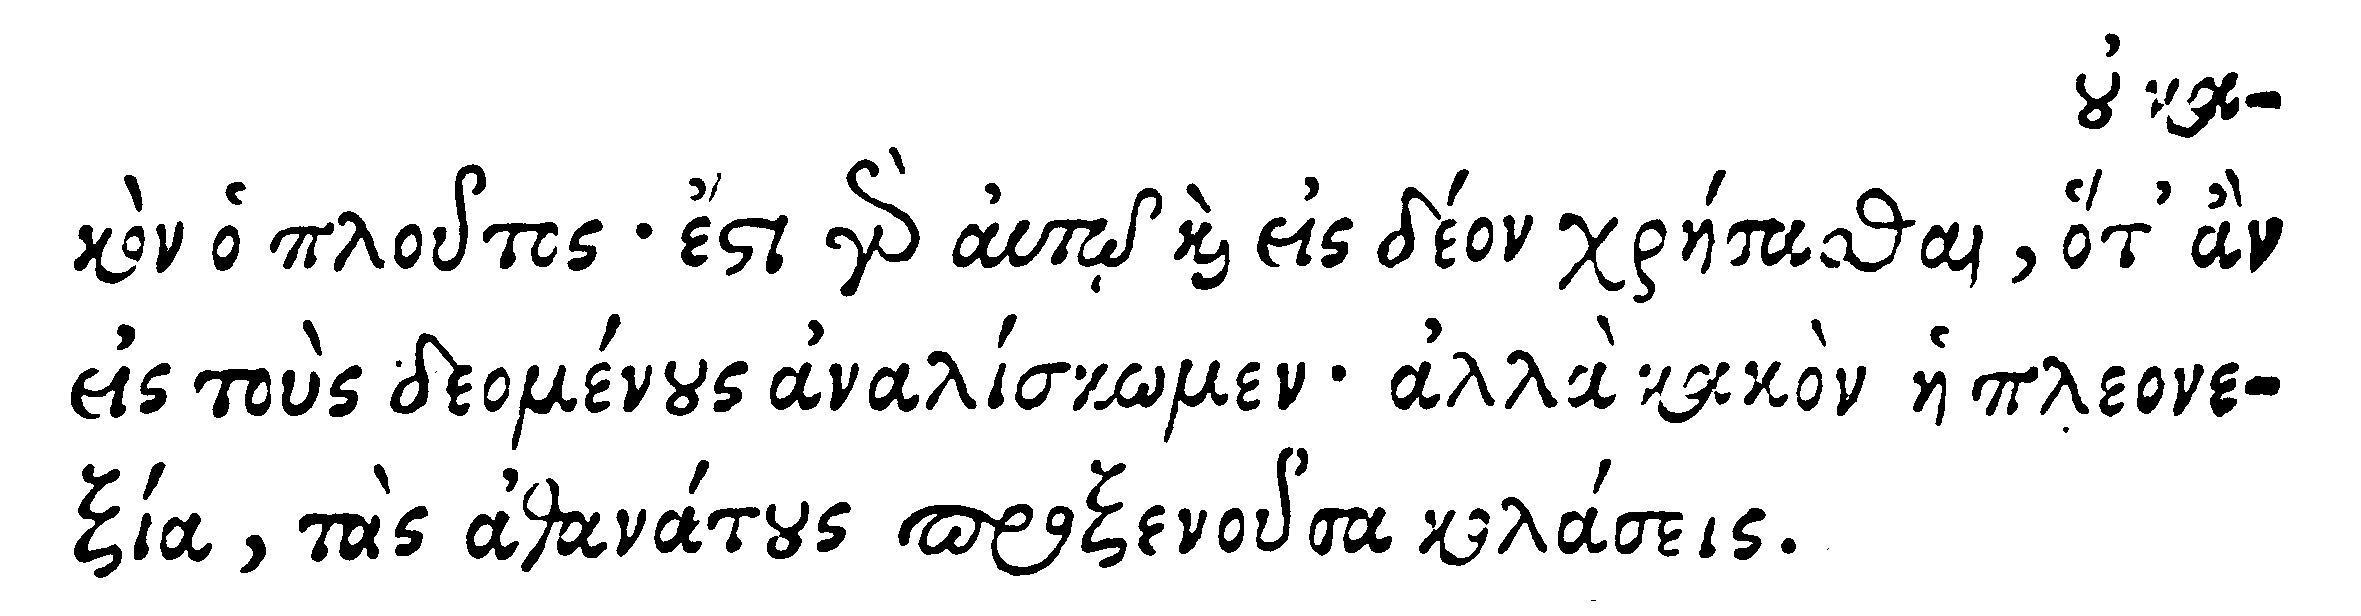 οὐ κα-
κὸν ὁ πλοῦτος· ἔστι γὰρ αὐτῷ καὶ εἰς δέον χρήσασθαι, ὅτ’ ἂν
εἰς τοὺς δεομένους ἀναλίσκωμεν· ἀλλὰ κακὸν ἡ πλεονε-
ξία, τὰς ἀθανάτους προξενοῦσα κολάσεις.